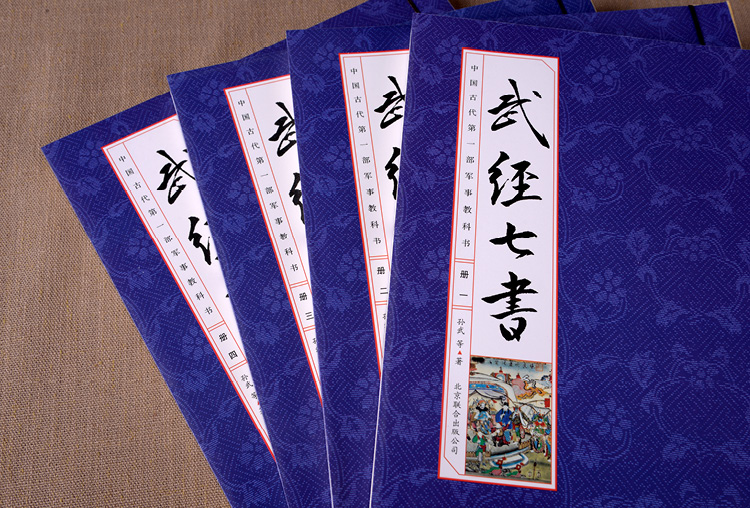 中国古代第一部军事教科书
册四
孙武
武經
中国古代第一部军事教科书
册三
孙
武
中国古代第一部军事教科书
册二
孙
武
武經七書
中国古代第一部军事教科书
册一
孙武 等▲著
北京联合出版公司